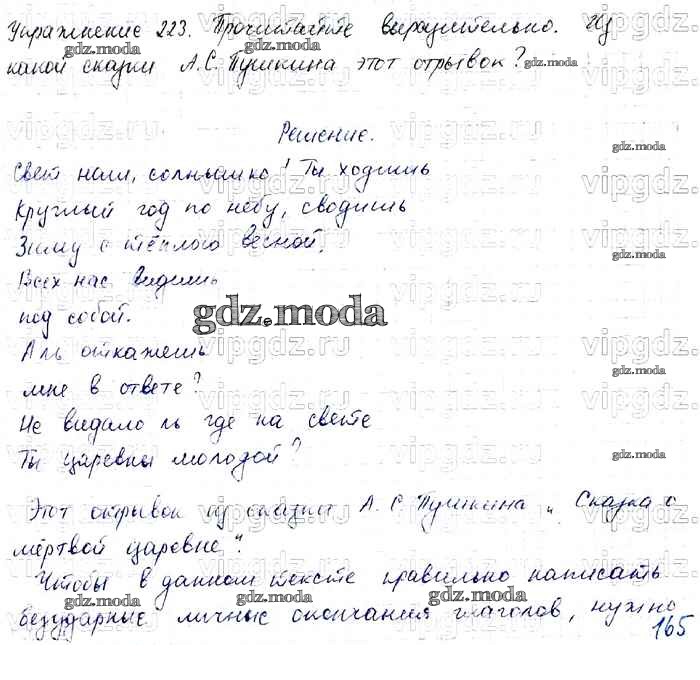 Упражнение 223. Прочитайте выразительно. Из
какой сказки А.С. Пушкина этот отрывок?
Решение.
Свет наш, солнышко! Ты ходишь
Круглый год по небу, сводишь
Зиму с тёплою весной,
Всех нас видишь
под собой.
Аль откажешь
мне в ответе?
Не видало ль где на свете
Ты царевны молодой?
Этот отрывок из сказки А. С. Пушкина „Сказка о
мёртвой царевне".
Чтобы в данном тексте правильно написать
безударные личные окончания глаголов, нужно
165
gdz.moda
vipgdz.ru